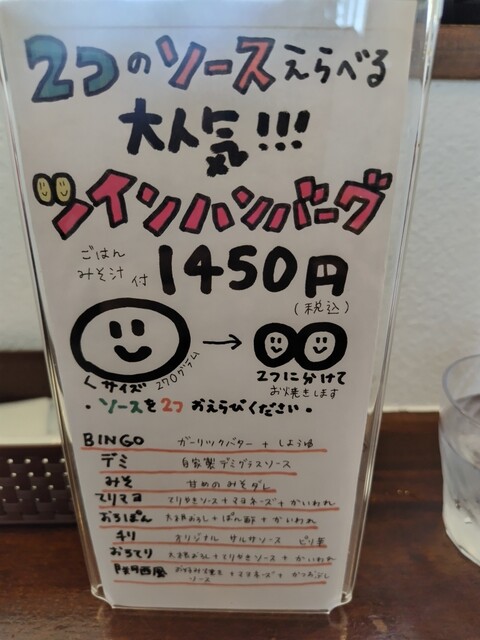 2つのソースえらべる
大人気!!!
ツインハンバーグ
ごはん
みそ汁 付 1450円
(税込)
Lサイズ 270グラム → 2つに分けて
お焼きします
・ソースを2つおえらびください・
BINGO ガーリックバター + しょうゆ
デミ 自家製デミグラスソース
みそ 甘めのみそダレ
てりマヨ てりやきソース+マヨネーズ+かいわれ
おろぽん 大根おろし+ぽん酢+かいわれ
チリ オリジナル サルサソース ピリ辛
おろてり 大根おろし+てりやきソース+かいわれ
関西風 お好み焼き ソース +マヨネーズ+かつおぶし